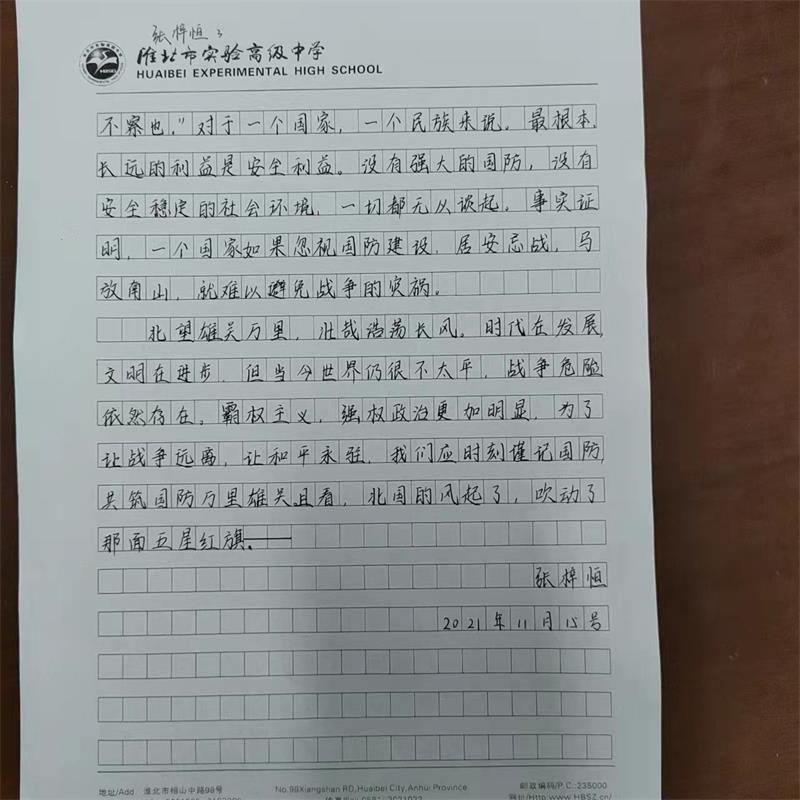 张梓恒 3
淮北市实验高级中学
HUAIBEI EXPERIMENTAL HIGH SCHOOL
不察也."对于一个国家,一个民族来说。最根本,
长远的利益是安全利益。没有强大的国防,没有
安全稳定的社会环境,一切都无从谈起。事实证
明,一个国家如果忽视国防建设,居安忘战,马
放南山,就难以避免战争的灾祸。
北望雄关万里,壮哉浩荡长风。时代在发展,
文明在进步,但当今世界仍很不太平,战争危险
依然存在。霸权主义,强权政治更加明显,为了
让战争远离,让和平永驻,我们应时刻谨记国防,
共筑国防万里雄关.且看,北国的风起了,吹动了
那面五星红旗.——
张梓恒
2021年11月15号
地址/Add 淮北市相山中路98号
No.98Xiangshan RD,Huaibei City,Anhui Province
邮政编码/P.C:235000
网址/Http:www.HBSZ.